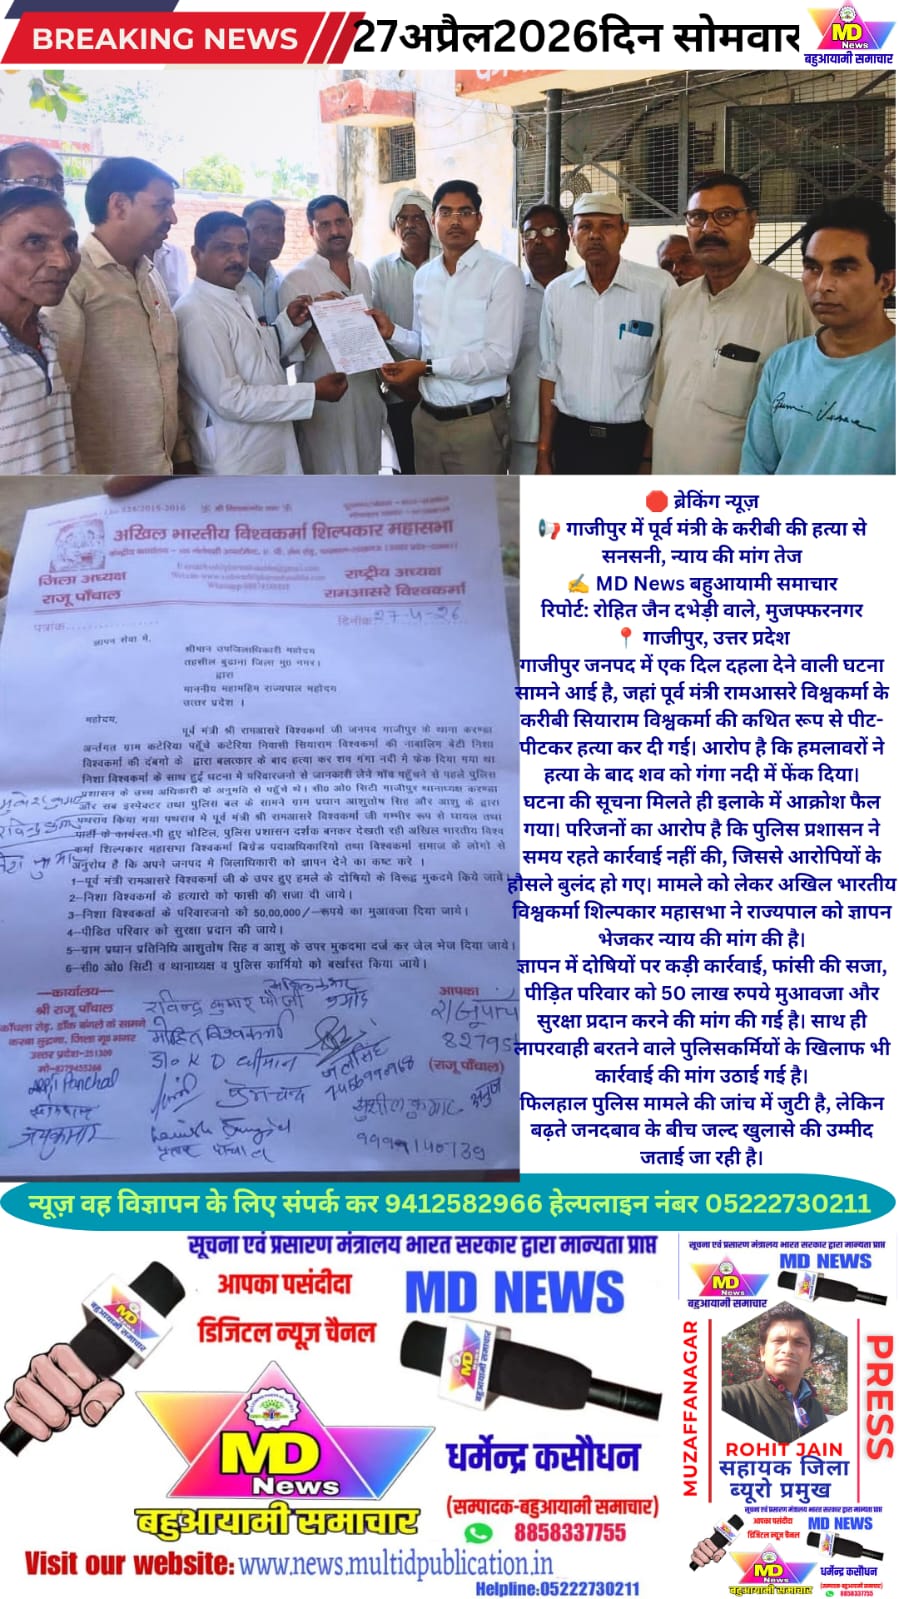 BREAKING NEWS
27अप्रैल2026दिन सोमवार
MD
News
बहुआयामी समाचार
अखिल भारतीय विश्वकर्मा शिल्पकार महासभा
जिला अध्यक्ष
राजू पाँचाल
राष्ट्रीय अध्यक्ष
रामआसरे विश्वकर्मा
पत्रांक
दिनांक 27-4-26
ज्ञापन सेवा में,
श्रीमान उपजिलाधिकारी महोदय
तहसील बुढाना जिला मु० नगर।
द्वारा
माननीय महामहिम राज्यपाल महोदय
उत्तर प्रदेश ।
महोदय,
पूर्व मंत्री श्री रामआसरे विश्वकर्मा जी जनपद गाजीपुर के थाना करण्डा
अर्न्तगत ग्राम कटेरिया पहुँचे कटेरिया निवासी सियाराम विश्वकर्मा की नाबालिग बेटी निशा
विश्वकर्मा की दंबगो के द्वारा बलत्कार के बाद हत्या कर शव गंगा नदी मे फेंक दिया गया था
निशा विश्वकर्मा के साथ हुई घटना मे परिवारजनो से जानकारी लेने गाँव पहुँचने से पहले पुलिस
प्रशासन के उच्च अधिकारी के अनुमति से पहुचे थे। सी० ओ० सिटी गाजीपुर थानाध्यक्ष करण्डा
और सब इस्पेक्टर तथा पुलिस बल के सामने ग्राम प्रधान आशुतोष सिह और आशु के द्वारा
पथराव किया गया पथराव मे पूर्व मंत्री श्री रामआसरे विश्वकर्मा जी गम्भीर रूप से घायल तथा
पार्टी के कार्यकर्ता भी हुए चोटिल, पुलिस प्रशासन दर्शक बनकर देखती रही अखिल भारतीय विश्व
कर्मा शिल्पकार महासभा विश्वकर्मा ब्रिगेड पदाअधिकारियो तथा विश्वकर्मा समाज के लोगो से
अनुरोध है कि अपने जनपद मे जिलाधिकारी को ज्ञापन देने का कष्ट करे ।
1–पूर्व मंत्री रामआसरे विश्वकर्मा जी के उपर हुए हमले के दोषियो के विरूद्व मुकदमे किये जावे।
2–निशा विश्वकर्मा के हत्यारो को फासी की सजा दी जाये।
3–निशा विश्वकर्ता के परिवारजनो को 50,00,000/–रूपये का मुआवजा दिया जाये।
4–पीडित परिवार को सुरक्षा प्रदान की जाये।
5–ग्राम प्रधान प्रतिनिधि आशुतोष सिह व आशु के उपर मुकदमा दर्ज कर जेल भेज दिया जाये।
6–सी० ओ० सिटी व थानाध्यक्ष व पुलिस कार्मियो को बर्खास्त किया जाये।
—कार्यालय—
श्री राजू पाँचाल
काँधला रोड़, डाँक बंगले के सामने
कस्बा बुढ़ाना, जिला मु० नगर
उत्तर प्रदेश-251309
मो०-8279455266
आपका
राजू पांचा
82795
(राजू पाँचाल)
रविन्द्र कुमार
मोहित विश्वकर्मा
डा० K D धीमान
प्रेमचन्द
सुशील कुमार
जयकुमार
Panchal
🛑 ब्रेकिंग न्यूज़
📢 गाजीपुर में पूर्व मंत्री के करीबी की हत्या से
सनसनी, न्याय की मांग तेज
✍️ MD News बहुआयामी समाचार
रिपोर्ट: रोहित जैन दभेड़ी वाले, मुजफ्फरनगर
📍 गाजीपुर, उत्तर प्रदेश
गाजीपुर जनपद में एक दिल दहला देने वाली घटना
सामने आई है, जहां पूर्व मंत्री रामआसरे विश्वकर्मा के
करीबी सियाराम विश्वकर्मा की कथित रूप से पीट-
पीटकर हत्या कर दी गई। आरोप है कि हमलावरों ने
हत्या के बाद शव को गंगा नदी में फेंक दिया।
घटना की सूचना मिलते ही इलाके में आक्रोश फैल
गया। परिजनों का आरोप है कि पुलिस प्रशासन ने
समय रहते कार्रवाई नहीं की, जिससे आरोपियों के
हौसले बुलंद हो गए। मामले को लेकर अखिल भारतीय
विश्वकर्मा शिल्पकार महासभा ने राज्यपाल को ज्ञापन
भेजकर न्याय की मांग की है।
ज्ञापन में दोषियों पर कड़ी कार्रवाई, फांसी की सजा,
पीड़ित परिवार को 50 लाख रुपये मुआवजा और
सुरक्षा प्रदान करने की मांग की गई है। साथ ही
लापरवाही बरतने वाले पुलिसकर्मियों के खिलाफ भी
कार्रवाई की मांग उठाई गई है।
फिलहाल पुलिस मामले की जांच में जुटी है, लेकिन
बढ़ते जनदबाव के बीच जल्द खुलासे की उम्मीद
जताई जा रही है।
न्यूज़ वह विज्ञापन के लिए संपर्क कर 9412582966 हेल्पलाइन नंबर 05222730211
सूचना एवं प्रसारण मंत्रालय भारत सरकार द्वारा मान्यता प्राप्त
आपका पसंदीदा
डिजिटल न्यूज़ चैनल
MD NEWS
MD
News
बहुआयामी समाचार
धर्मेन्द्र कसौधन
(सम्पादक-बहुआयामी समाचार)
8858337755
Visit our website: www.news.multidpublication.in
Helpline:05222730211
सूचना एवं प्रसारण मंत्रालय भारत सरकार द्वारा मान्यता प्राप्त
MD NEWS
MD
News
बहुआयामी समाचार
MUZAFFANAGAR
PRESS
ROHIT JAIN
सहायक जिला
ब्यूरो प्रमुख
सूचना एवं प्रसारण मंत्रालय भारत सरकार द्वारा मान्यता प्राप्त
आपका पसंदीदा
डिजिटल न्यूज़ चैनल
MD NEWS
MD
News
बहुआयामी समाचार
धर्मेन्द्र कसौधन
(सम्पादक-बहुआयामी समाचार)
8858337755